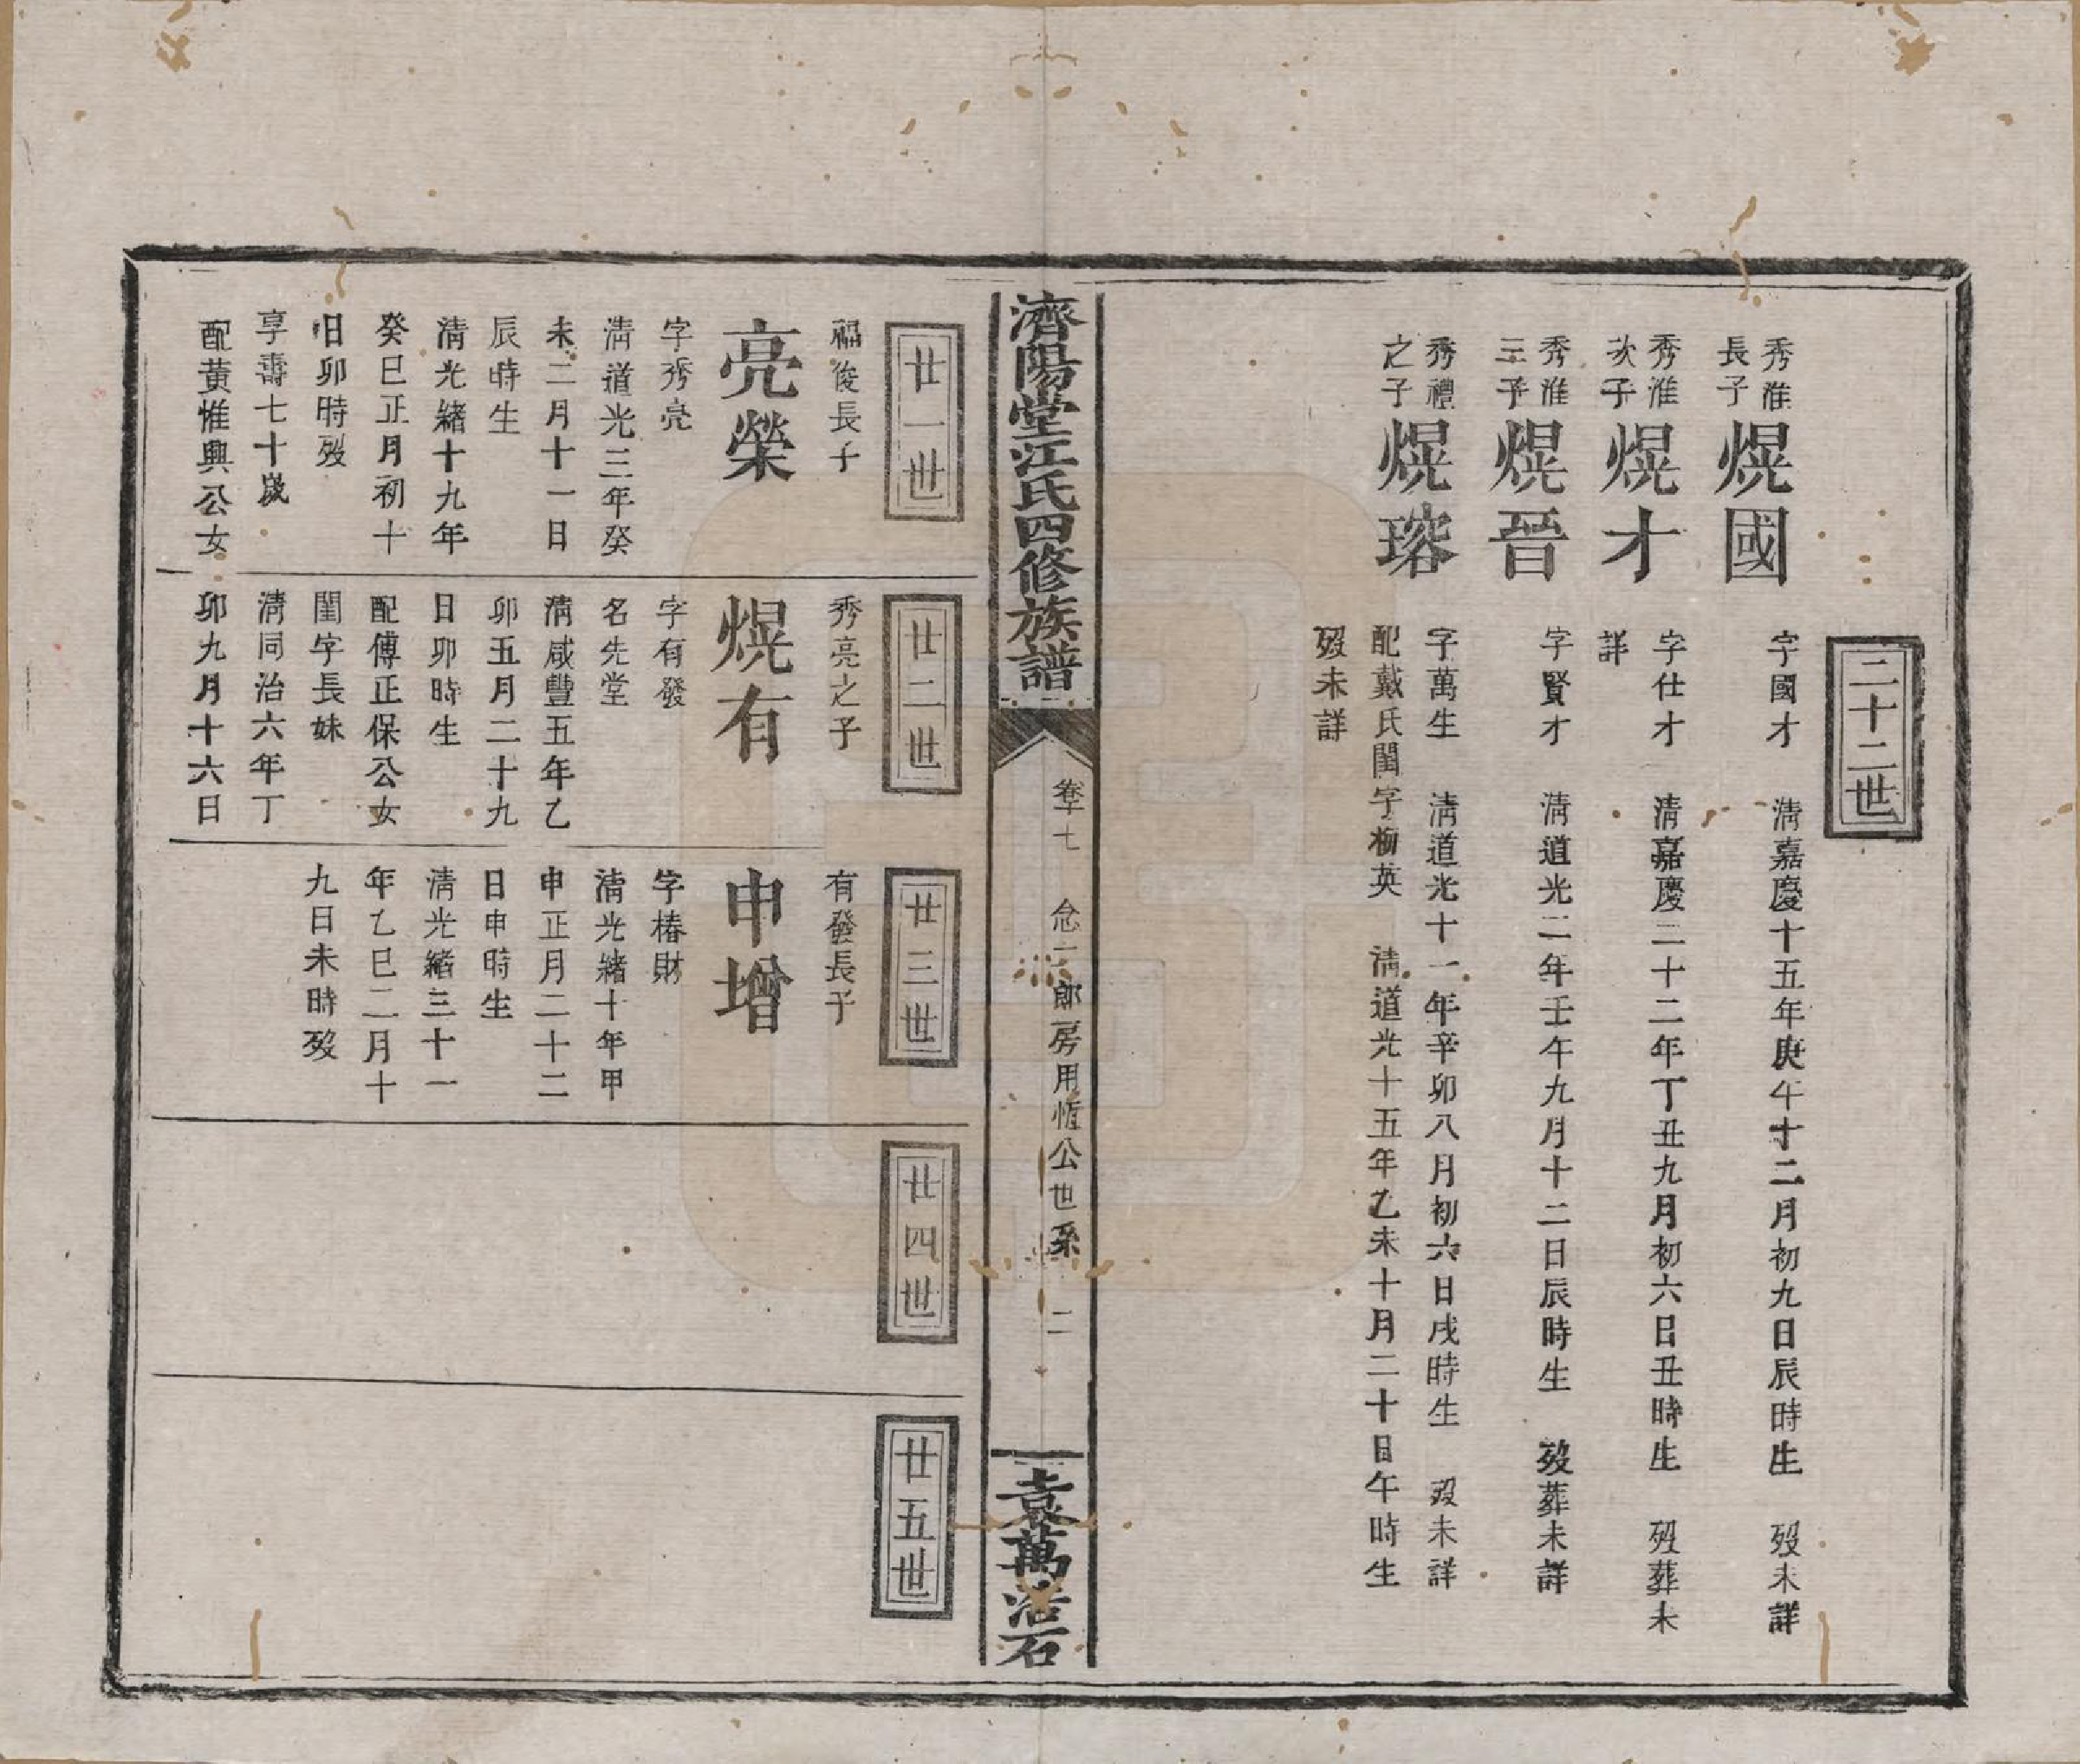 二十二世
秀淮長子
熀國
字國才 清嘉慶十五年庚午十二月初九日辰時生 歿未詳
秀淮次子
熀才
字仕才 清嘉慶二十二年丁丑九月初六日丑時生 歿葬未
詳
秀淮三子
熀晉
字賢才 清道光二年壬午九月十二日辰時生 歿葬未詳
秀禮之子
熀瑢
字萬生 清道光十一年辛卯八月初六日戌時生 歿未詳
配戴氏閨字柳英 清道光十五年乙未十月二十日午時生
歿未詳
濟陽堂江氏四修族譜
卷十七 念一郎房用恆公世系 二
袁萬治石
廿一世
福俊長子
亮榮
字秀亮
清道光三年癸
未二月十一日
辰時生
清光緒十九年
癸巳正月初十
日卯時歿
享壽七十歲
配黄惟興公女
廿二世
秀亮之子
熀有
字有發
名先堂
清咸豐五年乙
卯五月二十九
日卯時生
配傅正保公女
閨字長妹
清同治六年丁
卯九月十六日
廿三世
有發長子
申增
字椿財
清光緒十年甲
申正月二十二
日申時生
清光緒三十一
年乙巳二月十
九日未時歿
廿四世
廿五世